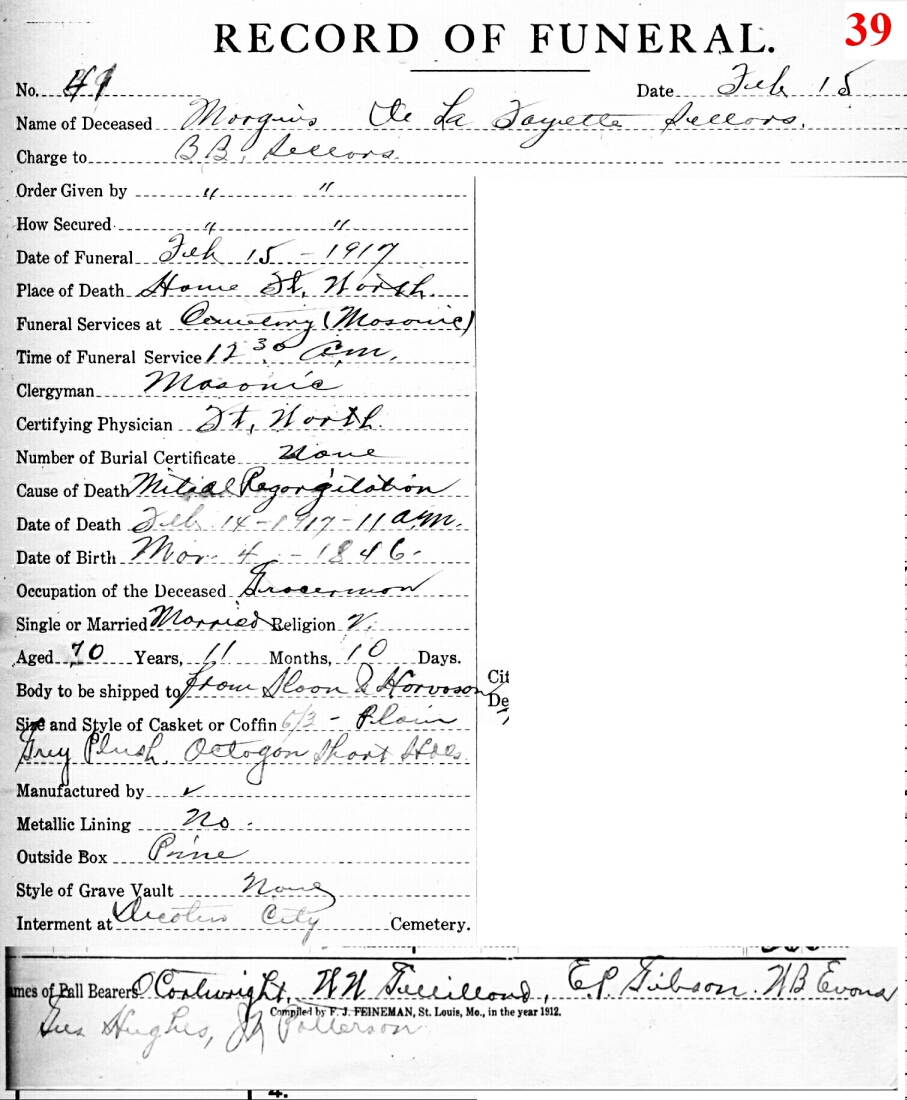 39
RECORD OF FUNERAL.
No. 41 Date Feb 15
Name of Deceased Morquis De La Fayette Sellors.
Charge to B.B. Sellors.
Order Given by " "
How Secured " "
Date of Funeral Feb 15 - 1917
Place of Death Home Ft. Worth.
Funeral Services at Cemetery (Masonic)
Time of Funeral Service 12 30 a.m.
Clergyman Masonic
Certifying Physician Ft. Worth.
Number of Burial Certificate None
Cause of Death Mitral Regorgitation
Date of Death Feb 14 - 1917 - 11 a.m.
Date of Birth Mar. 4 - 1846.
Occupation of the Deceased Grocerman
Single or Married Married Religion
Aged 70 Years, 11 Months, 10 Days.
Body to be shipped to from
Cit
De
Size and Style of Casket or Coffin 6/3 - Plain
Grey Plush. Octogon Short
Manufactured by ✓
Metallic Lining No.
Outside Box Pine
Style of Grave Vault None
Interment at City Cemetery.
ames of Pall Bearers O Cartwright, W W E.P. Gibson. W B Evans
Compiled by F. J. FEINEMAN, St. Louis, Mo., in the year 1912.
Gus Hughes, Patterson
4.